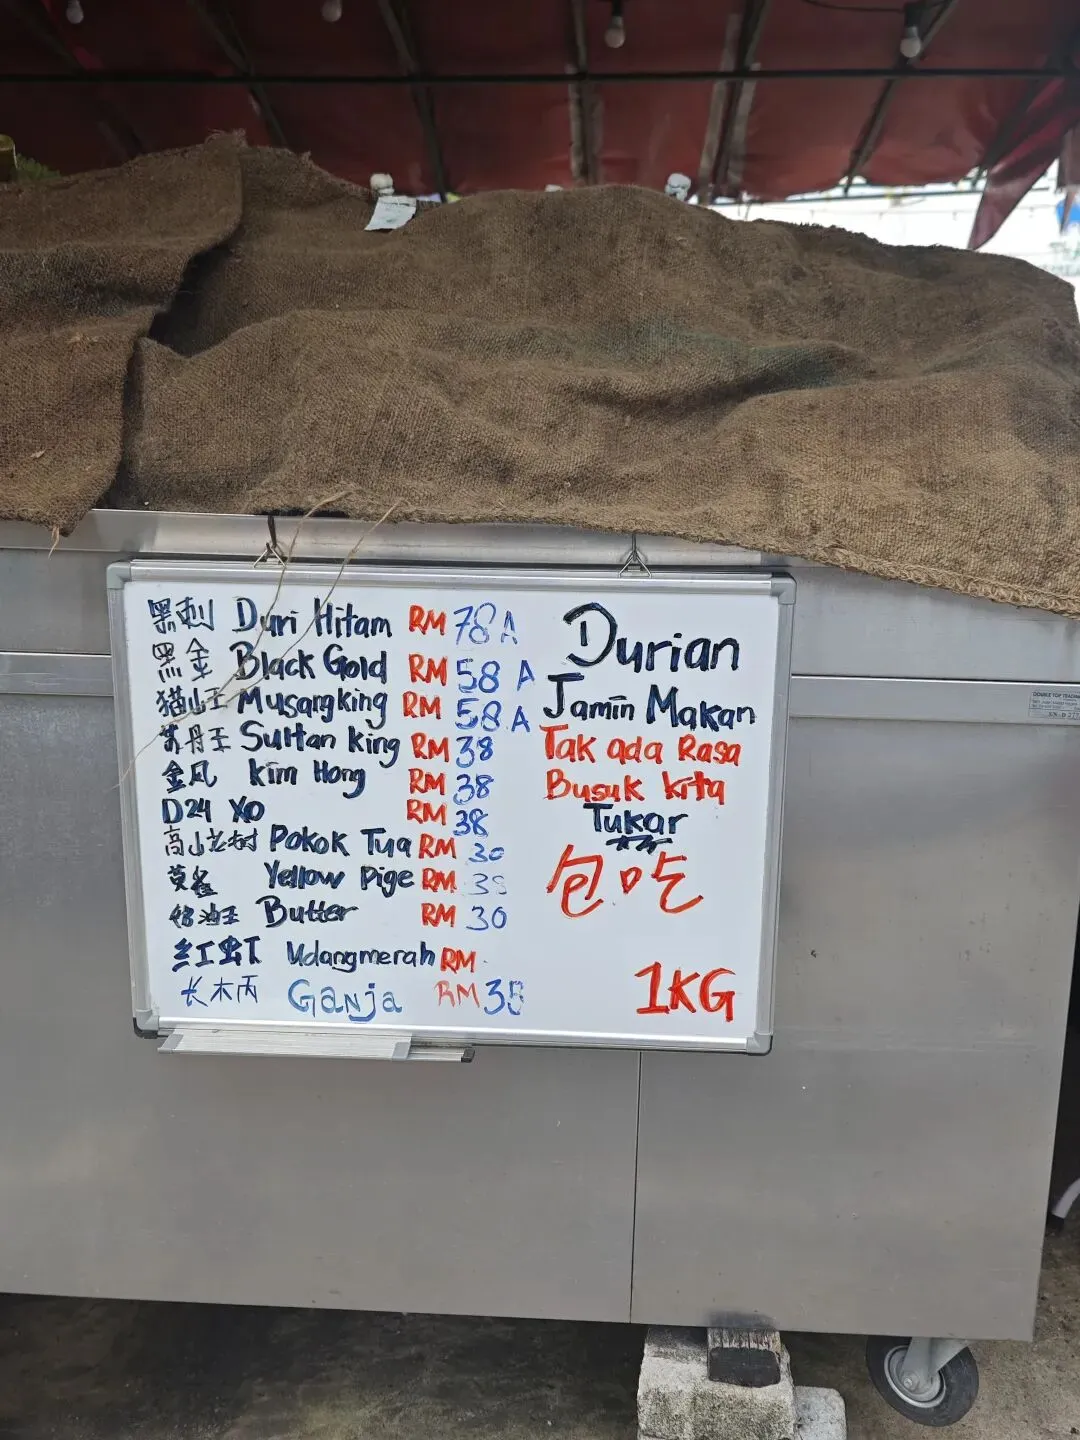 黑刺 Duri Hitam RM 78 A
黑金 Black Gold RM 58 A
猫山王 Musangking RM 58 A
苏丹王 Sultan King RM 38
金凤 Kim Hong RM 38
D24 XO RM 38
高山老树 Pokok Tua RM 30
黄雀 Yellow Pige RM
奶油王 Butter RM 30
红虾 Udangmerah RM
长木丙 Ganja RM
Durian
Jamin Makan
Tak ada Rasa
Busuk kita
Tukar
包吃
1KG